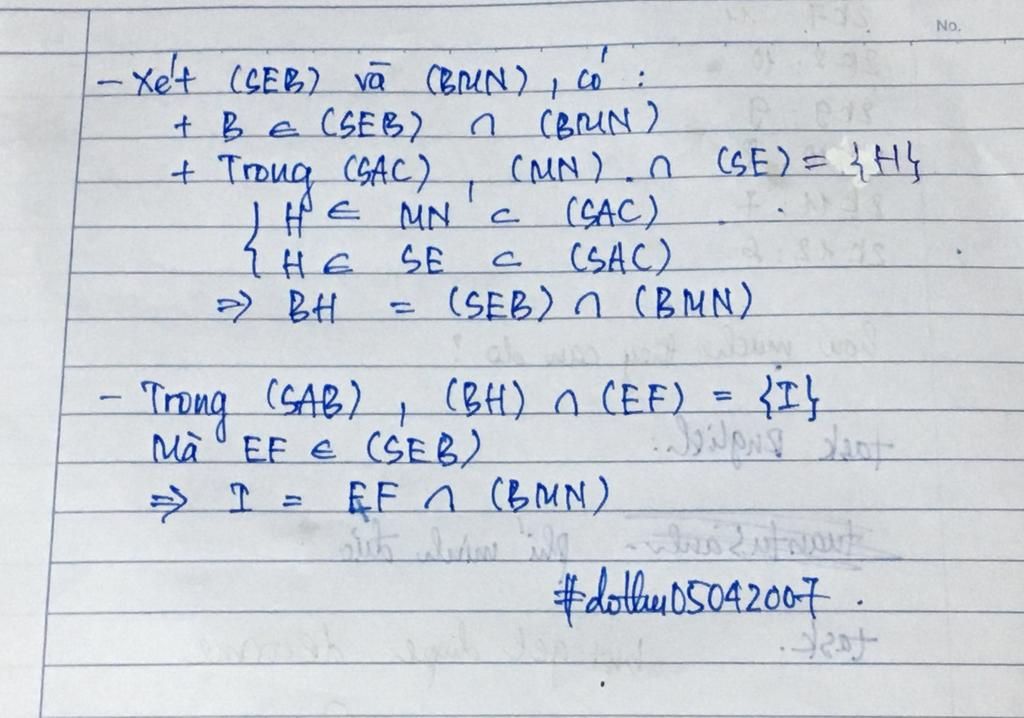 No.
- Xét (SEB) và (BMN), có :
+ B ∈ (SEB) ∩ (BMN)
+ Trong (SAC), (MN) ∩ (SE) = {H}
{ H ∈ MN ⊂ (SAC)
{ H ∈ SE ⊂ (SAC)
⇒ BH = (SEB) ∩ (BMN)
- Trong (SAB), (BH) ∩ (EF) = {I}
Mà EF ∈ (SEB)
⇒ I = EF ∩ (BMN)
#dothu05042007.